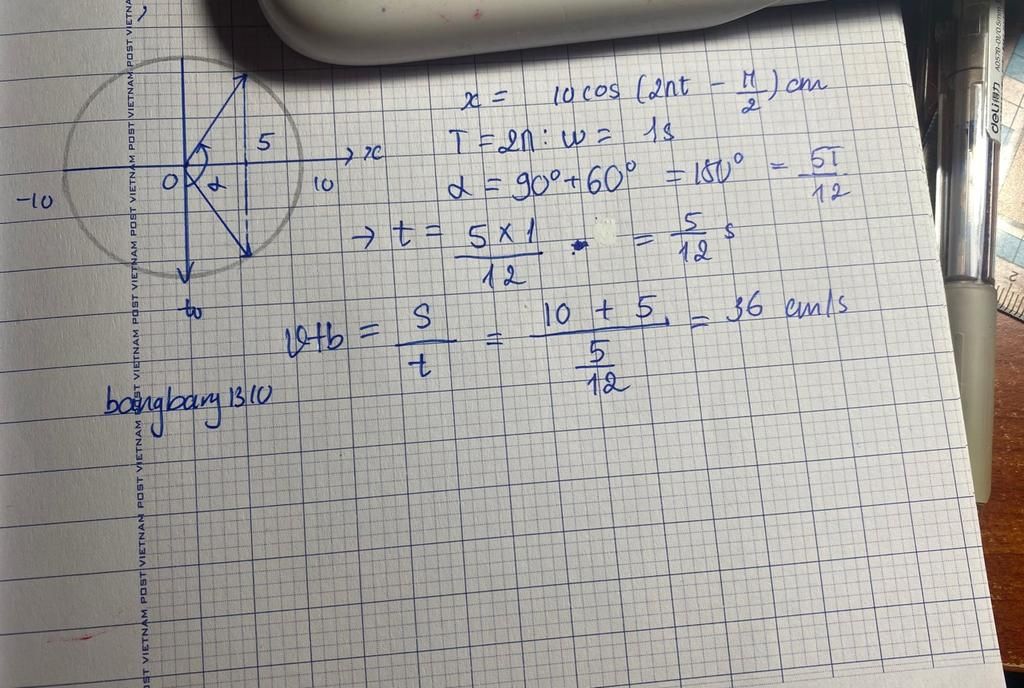 x = 10 cos (2πt - π/2) cm
T = 2π : w = 1s
α = 90° + 60° = 150° = 5T/12
→ t = 5 × 1/12 = 5/12 s
vtb = S/t = 10 + 5/(5/12) = 36 cm/s
bangbang1310
-10 O α 5 10 x
to
POST VIETNAM POST VIETNAM POST VIETNAM POST VIETNAM POST VIETNAM POST VIETNAM
deli得力